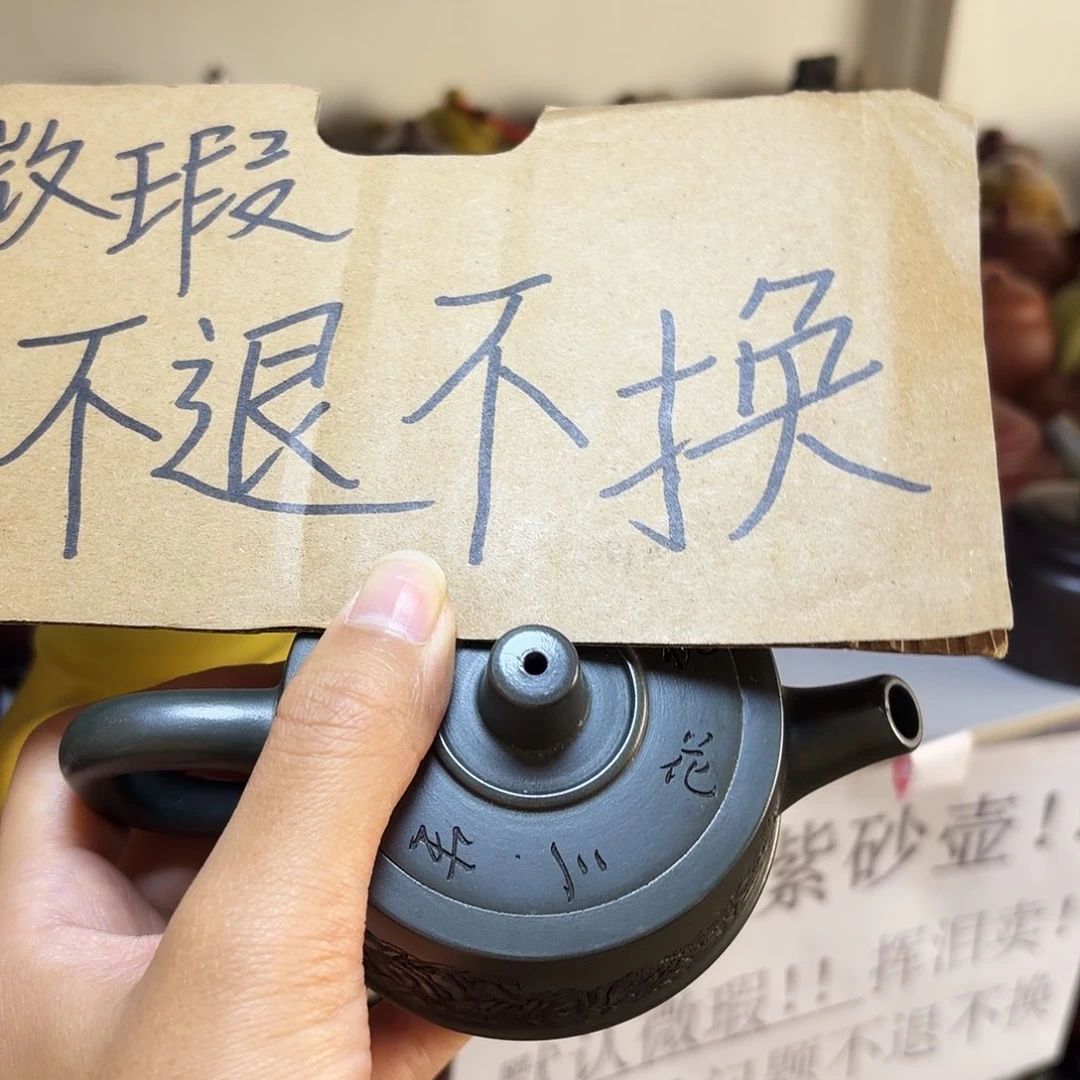 微瑕
不退不换
花
紫砂壶!
默认微瑕!! 挥泪卖!
问题不退不换